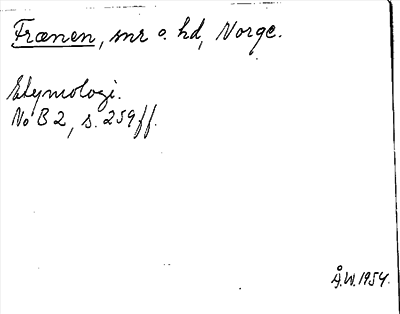 Frænen, snr o. hd, Norge.
Etymologi.
No B 2, s. 259 ff.
Å.W. 1954.